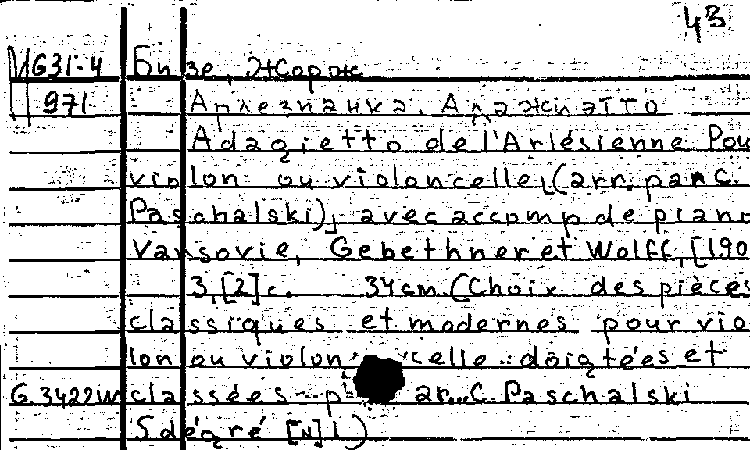 43
М631-4 Бизе, Жорж
971 Арлезианка. Адажиэтто
Adagietto de l'Arlésienne Pou
violon ou violoncelle, (arr. par C.
Paschalski), avec accomp de piano
Varsovie, Gebethner et Wolff, [190
3, [2] с. 34 cm (Choix des pièces
classiques et modernes pour vio
lon ou violoncelle doigtées et
G.3422W classées par C. Paschalski
5 degré [N] 1)